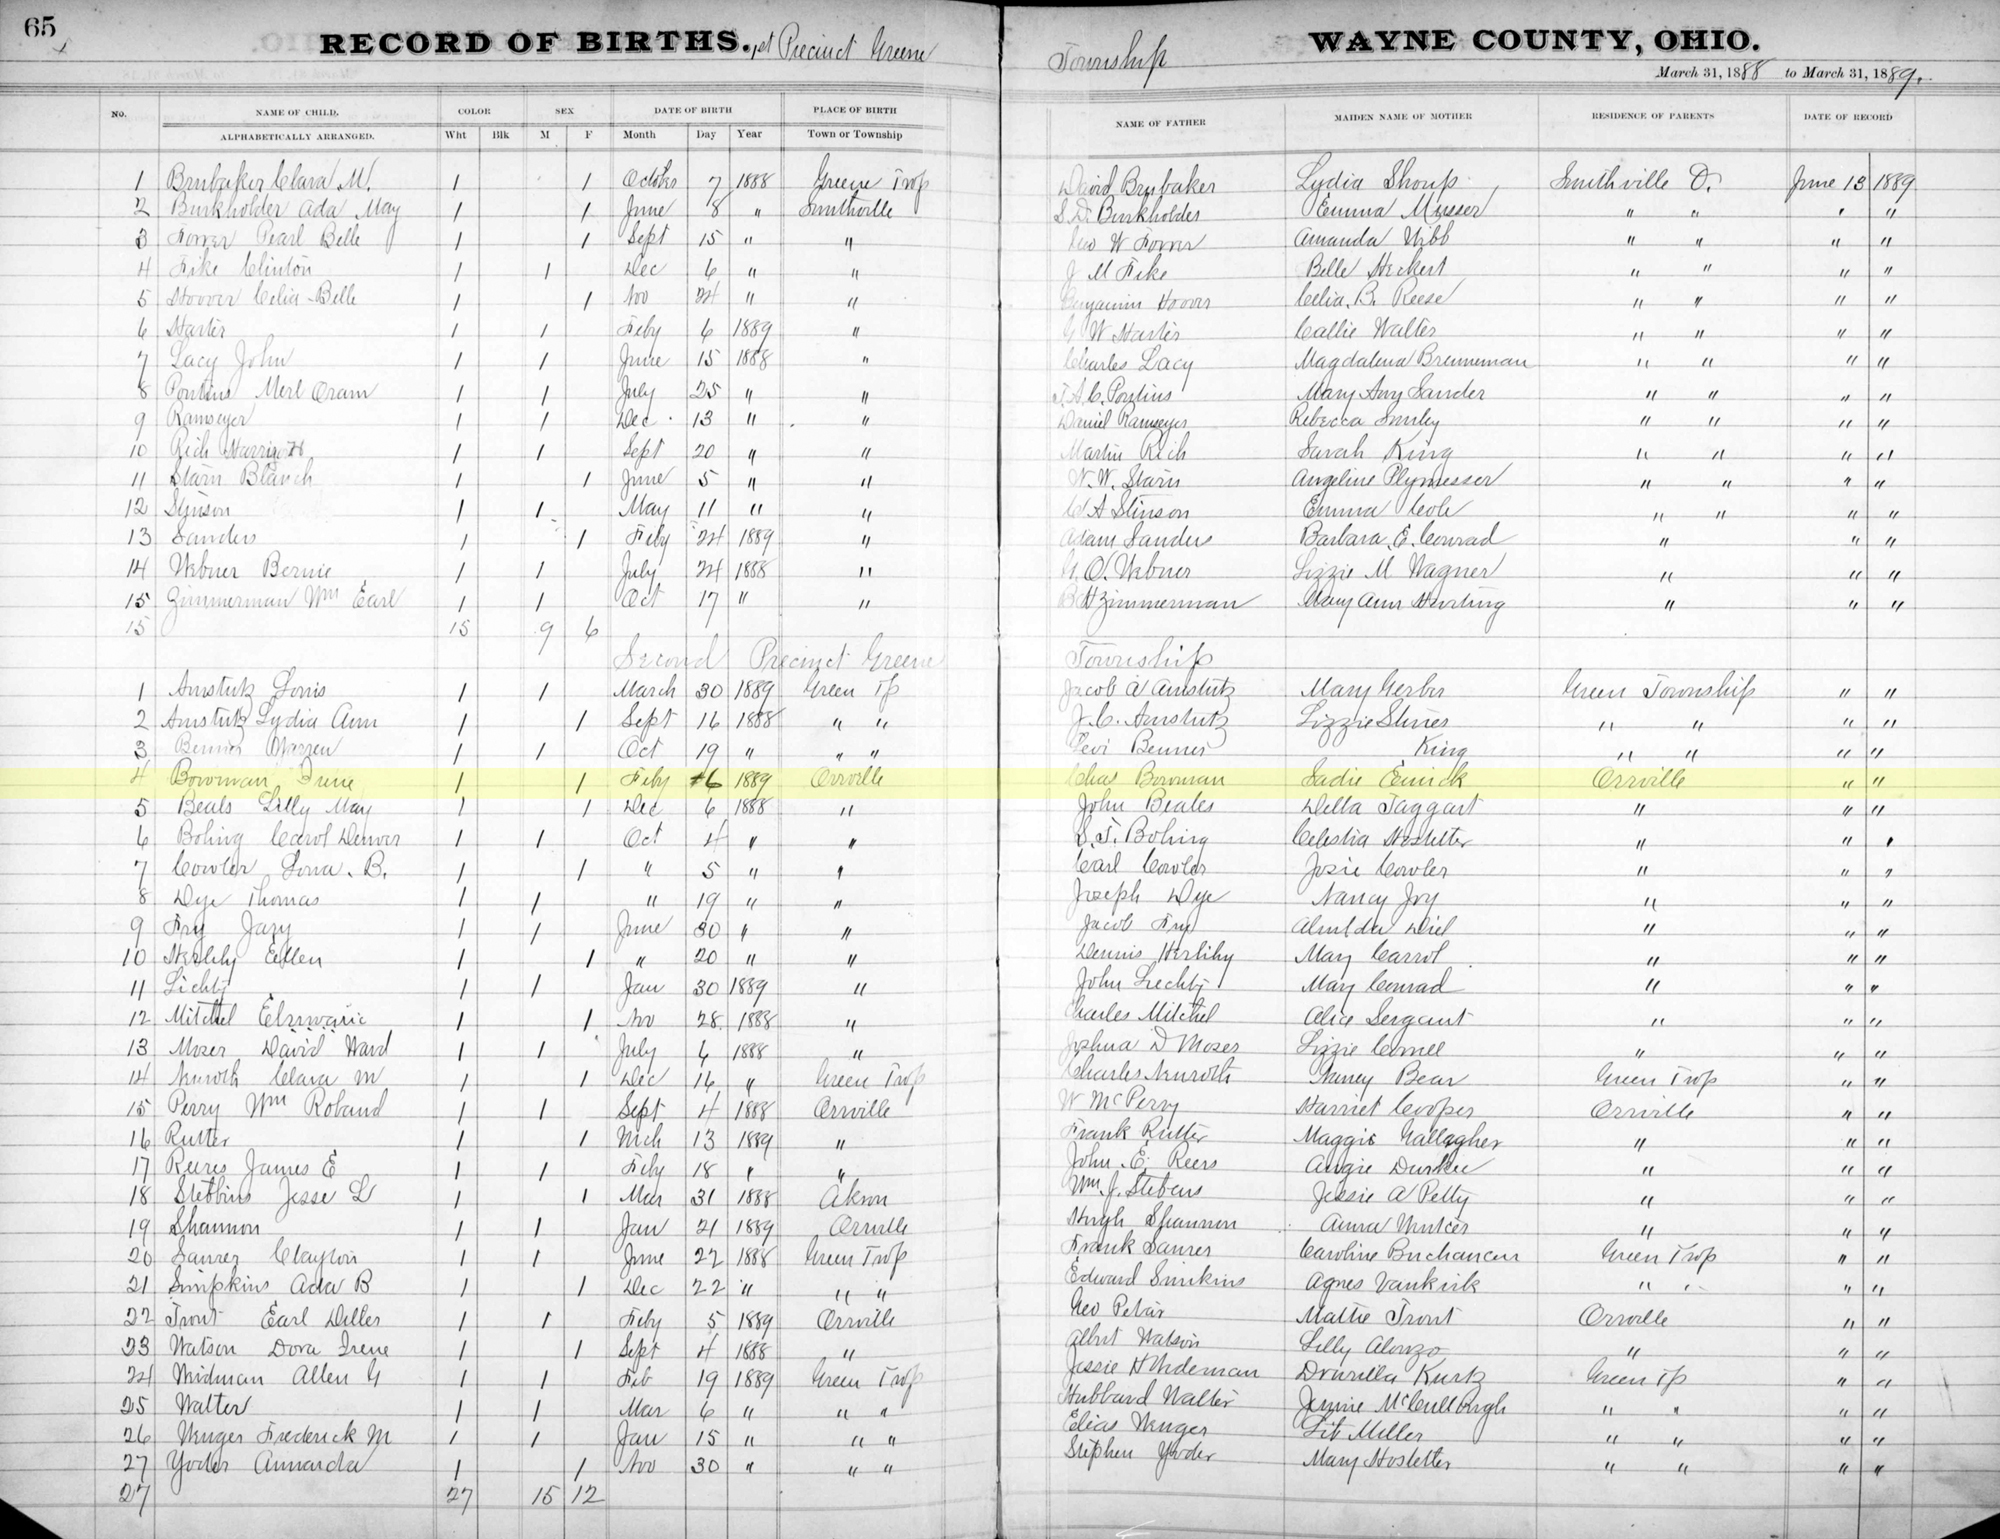 65
RECORD OF BIRTHS. 1st Precinct Greene Township WAYNE COUNTY, OHIO.
March 31, 1888 to March 31, 1889.
No. NAME OF CHILD, COLOR SEX DATE OF BIRTH PLACE OF BIRTH NAME OF FATHER MAIDEN NAME OF MOTHER RESIDENCE OF PARENTS DATE OF RECORD
ALPHABETICALLY ARRANGED. Wht Blk M F Month Day Year Town or Township
1 Brubaker Clara M. 1 1 October 7 1888 Greene Twp David Brubaker Lydia Shoup Smithville O. June 13 1889
2 Burkholder Ada May 1 1 June 8 " Smithville S. D. Burkholder Emma Musser " " " "
3 Forrer Pearl Belle 1 1 Sept 15 " " Geo W Forrer Amanda " " " "
4 Fike Clinton 1 1 Dec 6 " " J M Fike Belle Heckert " " " "
5 Hoover Celia Belle 1 1 Nov 24 " " Benjamin Hoover Celia. B. Reese " " " "
6 Harter 1 1 Feby 6 1889 " G W Harter Callie Walter " " " "
7 Lacy John 1 1 June 15 1888 " Charles Lacy Magdalena Brenneman " " " "
8 Pontius Merl Oram 1 1 July 25 " " J. A. C. Pontius Mary Amy Sander " " " "
9 Ramseyer 1 1 Dec 13 " " Daniel Ramseyer Rebecca Smiley " " " "
10 Rich 1 1 Sept 20 " " Martin Rich Sarah King " " " "
11 Starn Blanch 1 1 June 5 " " W. W. Starn Angeline Plymesser " " " "
12 Stinson 1 1 May 11 " " C A Stinson Emma Cole " " " "
13 Sanders 1 1 Feby 24 1889 " Adam Sanders Barbara. E. Conrad " " "
14 Webner Bernie 1 1 July 24 1888 " G. O. Webner Lizzie M Wagner " " "
15 Zimmerman Wm Earl 1 1 Oct 17 " " B H Zimmerman Mary Ann Hartung " " "
15 15 9 6
Second Precinct Greene Township
1 Amstutz Louis 1 1 March 30 1889 Green Tp Jacob A Amstutz Mary Gerber Green Township " "
2 Amstutz Lydia Ann 1 1 Sept 16 1888 " " J. C. Amstutz Lizzie Steiner " " " "
3 Benner Warren 1 1 Oct 19 " " " Levi Benner King " " " "
4 Bowman Irene 1 1 Feby 6 1889 Orrville Chas Bowman Sadie Emick Orrville " "
5 Beals Lilly May 1 1 Dec 6 1888 " John Beales Della Taggart " " "
6 Boling Carol Denver 1 1 Oct 4 " " S. T. Boling Celestia Hostetter " " "
7 Cowler Lona. B. 1 1 " 5 " " Carl Cowler Josie Cowler " " "
8 Dye Thomas 1 1 " 19 " " Joseph Dye Nancy Ivy " " "
9 Fry Jary 1 1 June 30 " " Jacob Fry Almeda Diel " " "
10 Herlihy Ellen 1 1 " 20 " " Dennis Herlihy May Carrol " " "
11 Lichty 1 1 Jan 30 1889 " John Liechty May Conrad " " "
12 Mitchel 1 1 Nov 28 1888 " Charles Mitchel Alice Sergant " " "
13 Moser David Ward 1 1 July 6 1888 " Joshua D Moser Lizzie Correll " " "
14 Nuroth Clara M 1 1 Dec 16 " Green Twp Charles Nuroth Nancy Bear Green Twp " "
15 Perry Wm Roland 1 1 Sept 4 1888 Orrville W Mc Perry Harriet Cooper Orrville " "
16 Rutter 1 1 Mch 13 1889 " Frank Rutter Maggie Gallagher " " "
17 Reeres James E 1 1 Feby 18 " " John. E. Reers Angie Durkee " " "
18 Stebbins Jesse L 1 1 Mar 31 1888 Akron Wm. J. Stebens Jessie A Petty " " "
19 Shannon 1 1 Jan 21 1889 Orrville Hugh Shannon Anna " " "
20 Saurer Clayton 1 1 June 22 1888 Green Twp Frank Saurer Caroline Buchanan Green Twp " "
21 Simpkins Ada B 1 1 Dec 22 " " " Edward Simkins Agnes Vankirk " " " "
22 Trout Earl Diller 1 1 Feby 5 1889 Orrville Geo Mattie Trout Orrville " "
23 Watson Dora Irene 1 1 Sept 4 1888 " Albert Watson Lilly Alonzo " " "
24 Widman Allen G 1 1 Feb 19 1889 Green Twp Jessie H Wideman Drurilla Kurtz Green Tp " "
25 Walter 1 1 Mar 6 " " " Hubbard Walter Jennie McCullough " " " "
26 Wenger Frederick M 1 1 Jan 15 " " " Elias Wenger Lib Miller " " " "
27 Yoder Amanda 1 1 Nov 30 " " " Stephen Yoder Mary Hostetter " " " "
27 27 15 12